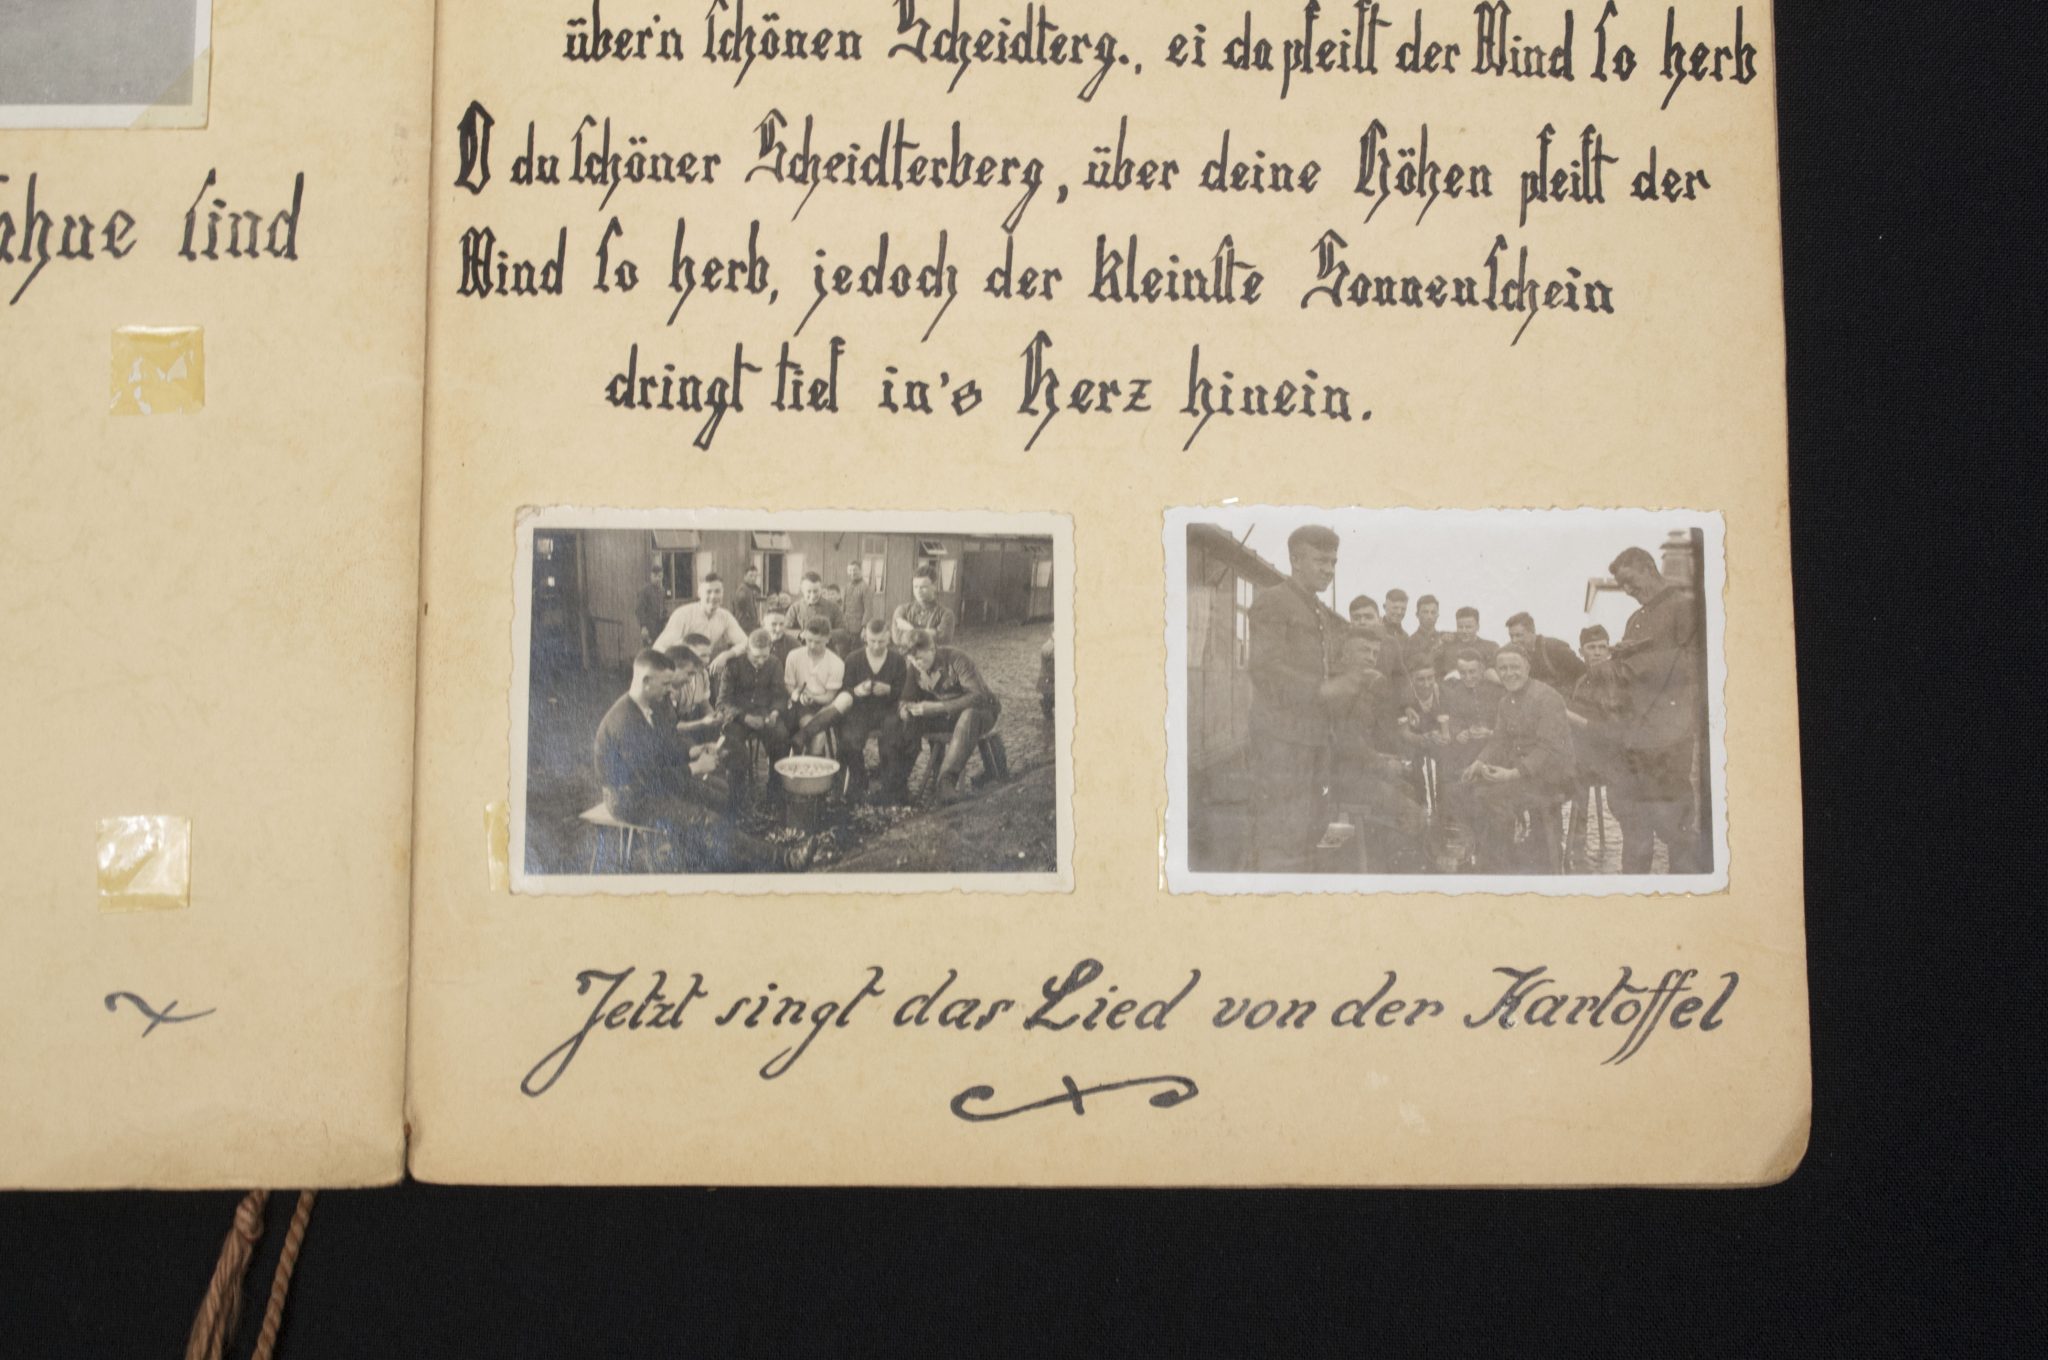 ahne sind
übern schönen Scheidterg., ei da pfeift der Wind so herb
O du schöner Scheidterberg, über deine Höhen pfeift der
Wind so herb, jedoch der kleinste Sonnenschein
dringt tief in's Herz hinein.
Jetzt singt das Lied von der Kartoffel